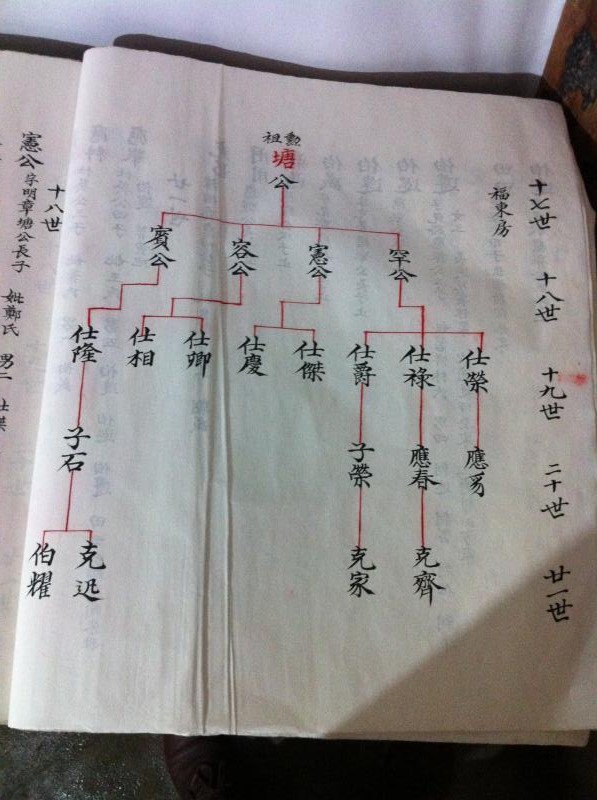 十七世
福東房
勲祖
塘公
十八世
罕公
憲公
容公
賓公
十九世
仕榮
仕祿
仕爵
仕傑
仕慶
仕卿
仕相
仕隆
二十世
應
應春
子榮
子石
廿一世
克齊
克家
克迅
伯耀
十八世
憲公 字明章塘公長子
妣鄭氏 男二 仕傑